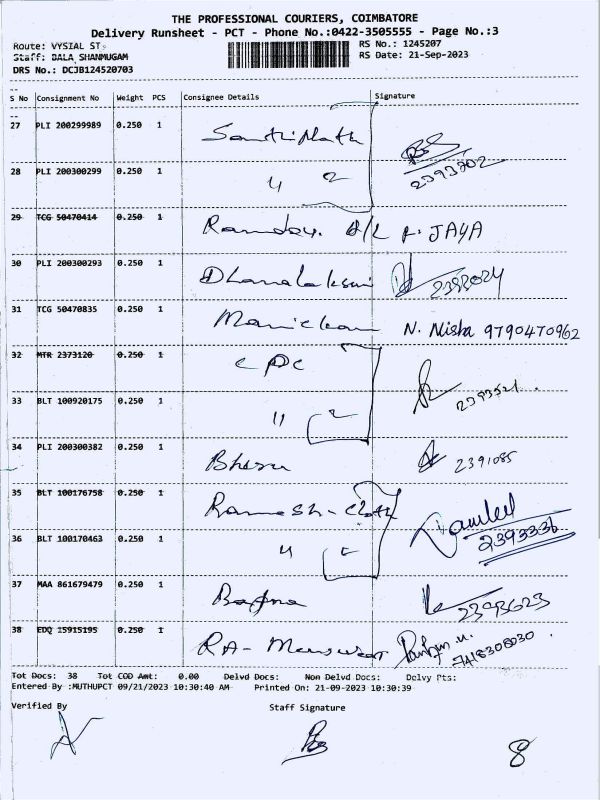 THE PROFESSIONAL COURIERS, COIMBATORE
Delivery Runsheet - PCT - Phone No.:0422-3505555 - Page No.:3
Route: VYSIAL ST
RS No.: 1245207
Staff: BALA SHANMUGAM
RS Date: 21-Sep-2023
DRS No.: DCJB124520703
S No Consignment No Weight PCS Consignee Details Signature
27 PLI 200299989 0.250 1
28 PLI 200300299 0.250 1 " 2 2393202
29 TCG 50470414 0.250 1 JAYA
30 PLI 200300293 0.250 1 Dhanalaksmi
31 TCG 50470835 0.250 1 N. Nisha 9790470962
32 MTR 2373120 0.250 1 CPC
33 BLT 100920175 0.250 1 " 2 2393521
34 PLI 200300382 0.250 1 2391085
35 BLT 100176758 0.250 1 Ramesh - Cloth
36 BLT 100170463 0.250 1 " 2393336
37 MAA 861679479 0.250 1 Bafna 2393623
38 EDQ 15915195 0.250 1 7418308030
Tot Docs: 38 Tot COD Amt: 0.00 Delvd Docs: Non Delvd Docs: Delvy Pts:
Entered By :MUTHUPCT 09/21/2023 10:30:40 AM Printed On: 21-09-2023 10:30:39
Verified By Staff Signature
8